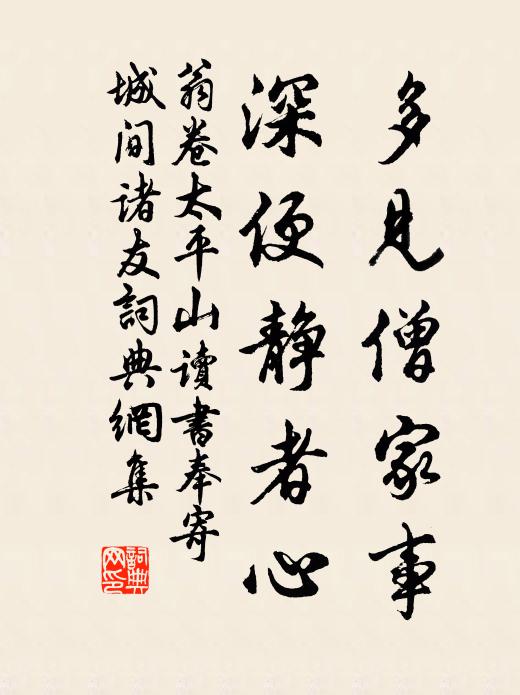 多見僧家事
深便静者心
翁卷太平山讀書奉寄
城間諸友詞典網集
詞典
网印